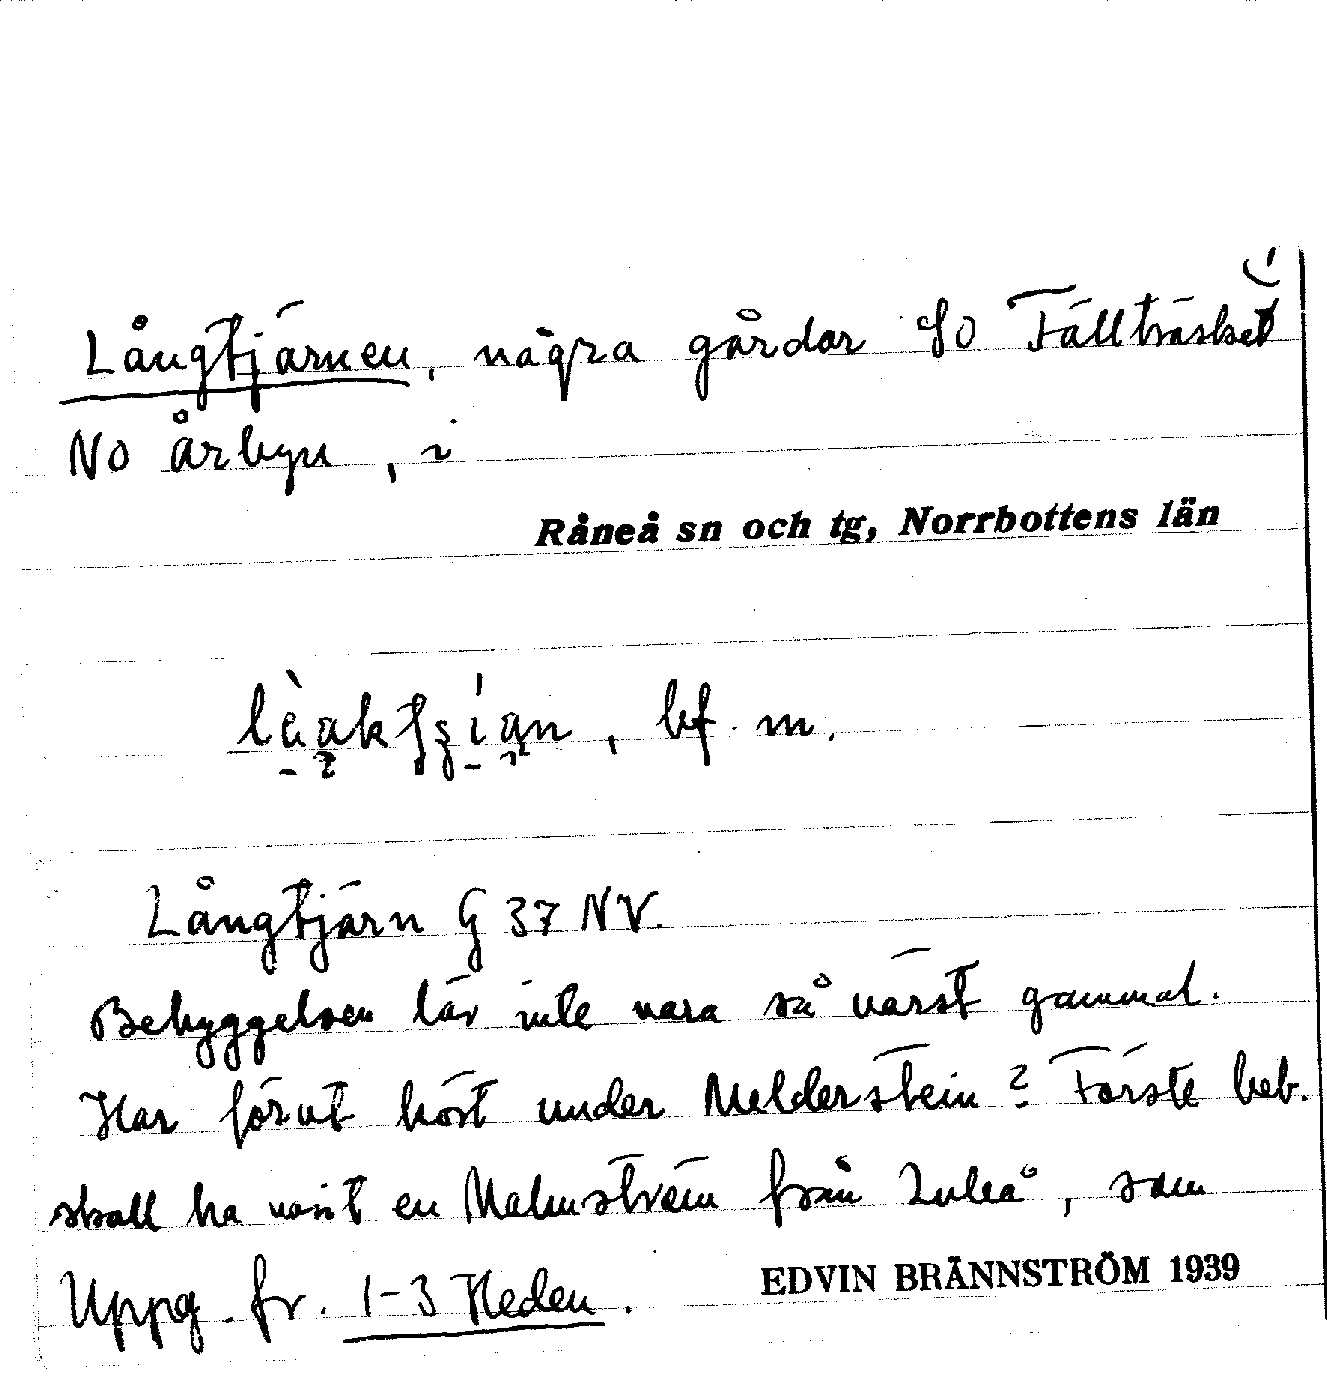 Långtjärnen, några gårdar SO Fällträsket
NO Årbyn, i
Råneå sn och tg, Norrbottens län
bf. m.
Långtjärn G 37 NV.
Bebyggelsen lär inte vara så värst gammal.
Har förut hört under Melderstein? Förste beb.
skall ha varit en Malmström från Luleå, som
Uppg. fr. 1-3 Heden.
EDVIN BRÄNNSTRÖM 1939